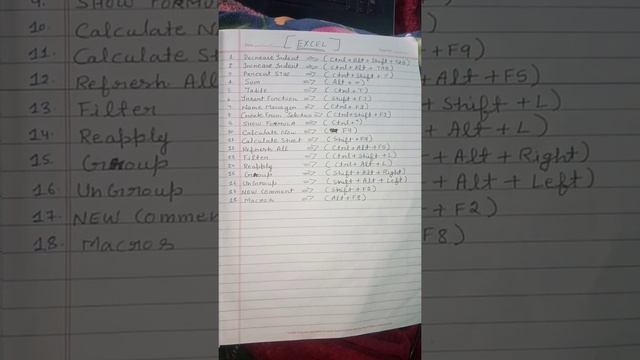 [EXCEL]
1. Decrease Indent => (Ctrl + Alt + Shift + TAB)
2. Increase Indent => (Ctrl + Alt + TAB)
3. Percent Style => (Ctrl + Shift + 5)
4. Sum => (Alt + =)
5. Table => (Ctrl + T)
6. Insert Function => (Shift + F3)
7. Name Manager => (Ctrl + F3)
8. Create From Selection => (Ctrl + Shift + F3)
9. SHOW FORMULA => (Ctrl + `)
10. Calculate Now => (F9)
11. Calculate Sheet => (Shift + F9)
12. Refresh All => (Ctrl + Alt + F5)
13. Filter => (Ctrl + Shift + L)
14. Reapply => (Ctrl + Alt + L)
15. Group => (Shift + Alt + Right)
16. UnGroup => (Shift + Alt + Left)
17. NEW Comment => (Shift + F2)
18. Macros => (Alt + F8)
9. SHOW FORMU
10. Calculate No
11. Calculate S
12. Refresh All
13. Filter
14. Reapply
15. Group
16. UnGroup
17. NEW Comme
18. Macros
+ F9)
Alt + F5)
Shift + L)
Alt + L)
+ Alt + Right)
+ Alt + Left)
+ F2)
F8)